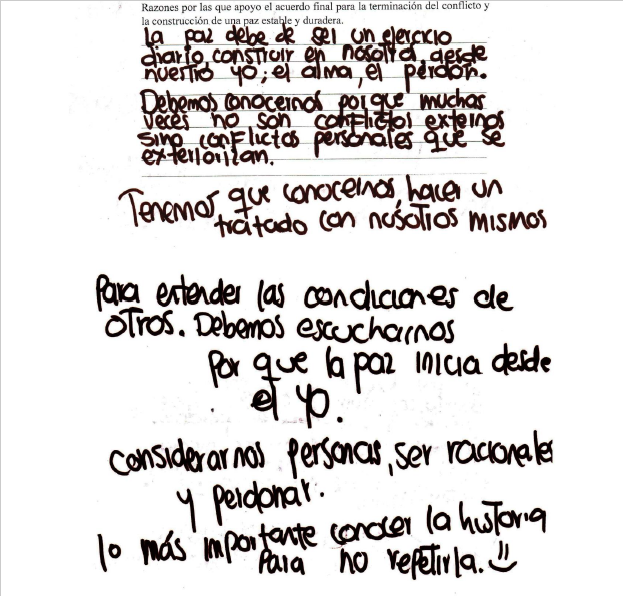 Razones por las que apoyo el acuerdo final para la terminación del conflicto y
la construcción de una paz estable y duradera.
la paz debe de ser un ejercicio
diario, construir en nosotros, desde
nuestro yo; el alma, el perdón.
Debemos conocernos porque muchas
veces no son conflictos externos
sino conflictos personales que se
exteriorizan.
Tenemos que conocernos, hacer un
tratado con nosotros mismos
Para entender las condiciones de
otros. Debemos escucharnos
Por que la paz inicia desde
el yo.
considerarnos personas, ser racionales
y perdonar.
lo más importante conocer la historia
Para no repetirla.